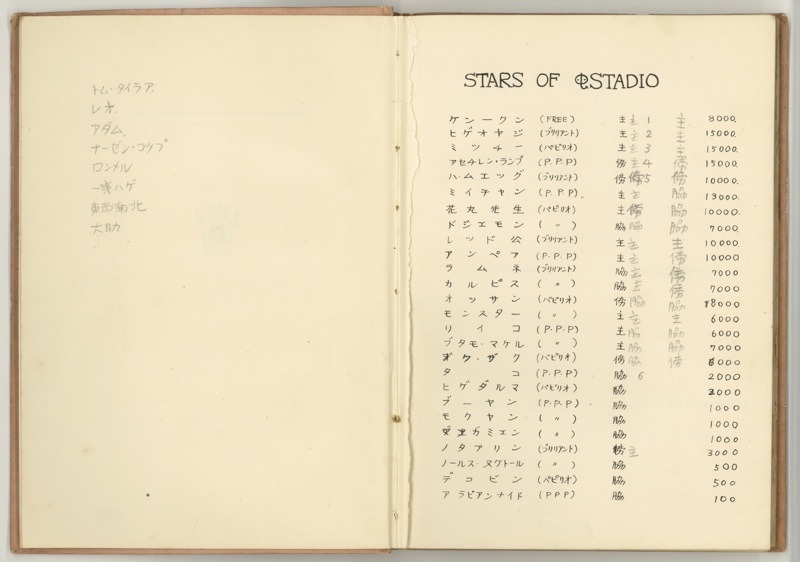 トム・タイラア.
レオ.
アダム.
ナーゼン・コップ
ロンメル
一寒ハゲ
東西南北
大助
STARS OF ESTADIO
ケンークン (FREE) 主 主 1 主 8000.
ヒゲオヤジ (ブリリアント) 主 主 2 主 15000.
ミッチー (パピリオ) 主 主 3 主 15000.
アセチレン・ランプ (P.P.P) 傍 主 4 傍 15000.
ハムエッグ (ブリリアント) 傍 傍 5 傍 10000.
ミイチャン (P.P.P). 主 主 脇 13000.
花丸先生 (パピリオ) 主 傍 脇 10000.
ドジエモン ( 〃 ) 脇 脇 脇 7000
レッド公 (ブリリアント) 主 主 主 10000
アンペア (P.P.P) 主 主 傍 10000
ラムネ (ブリリアント) 脇 主 傍 7000
カルピス ( 〃 ) 脇 主 傍 7000
オッサン (パピリオ) 傍 脇 脇 8000
モンスター ( 〃 ) 主 主 主 6000
リイコ (P.P.P) 主 脇 脇 6000
ブタモ・マケル ( 〃 ) 主 脇 脇 7000
オク・ザク (パピリオ) 傍 脇 傍 6000
タコ (P.P.P) 脇 6 2000
ヒゲダルマ (パピリオ) 脇 2000
ブーヤン (P.P.P) 脇 1000
モクヤン ( 〃 ) 脇 1000
ガミエン ( 〃 ) 脇 1000
ノタアリン (ブリリアント) 主 3000
ノールス・ヌケトール ( 〃 ) 脇 500
デコビン (パピリオ) 脇 500
アラビアンナイド (PPP) 脇 100